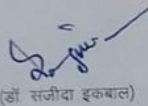 (डॉ. संजीदा इकबाल)